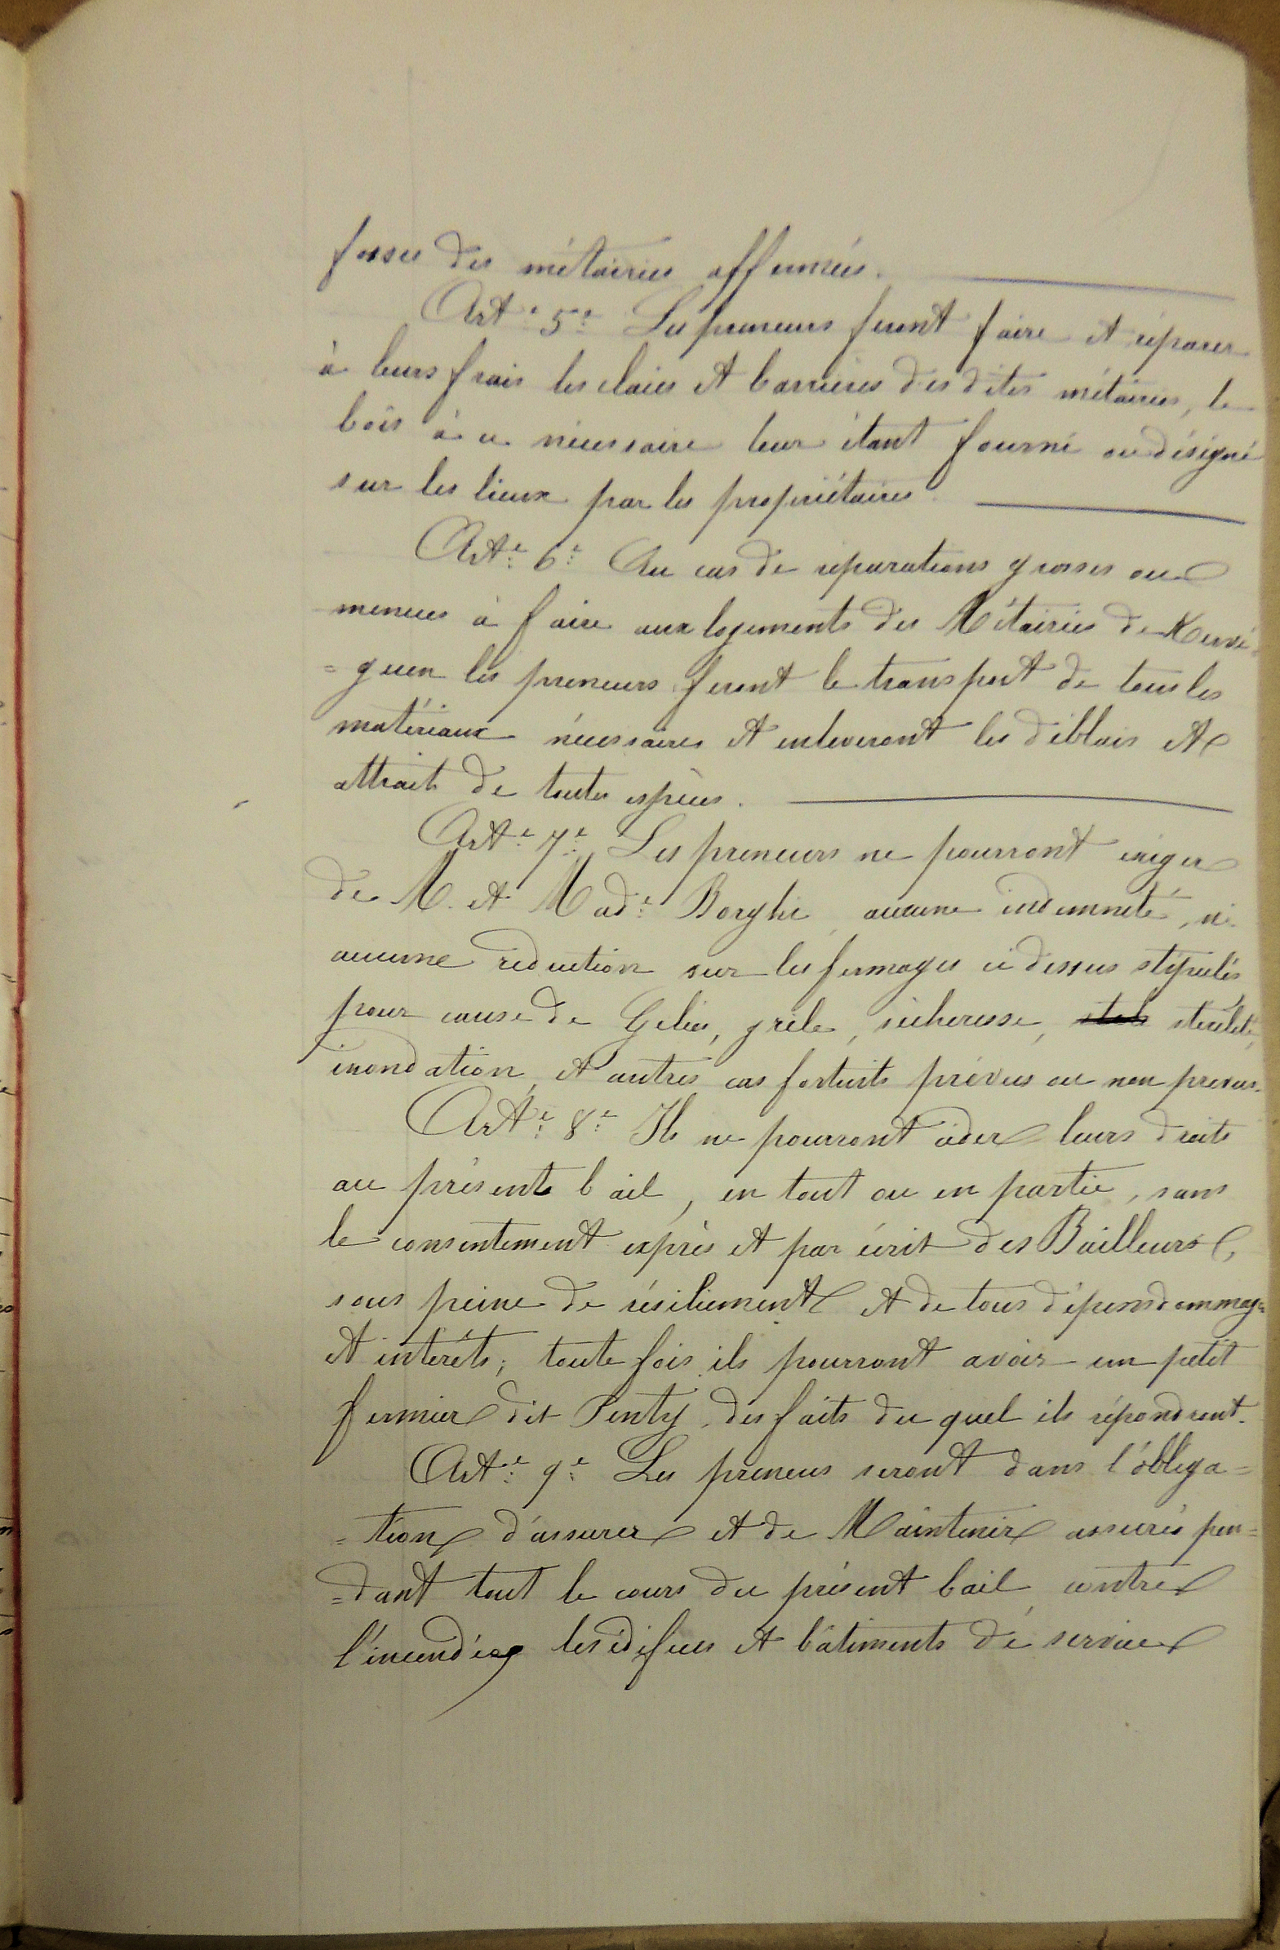 fossés des métairies affermées.
Art.e 5.e Les preneurs feront faire et réparer
à leurs frais les claies et barrières des dites métairies, le
bois à ce nécessaire leur étant fourni ou désigné
sur les lieux par les propriétaires.
Art.e 6.e Au cas de réparations grosses ou
menues à faire aux logements des Métairies de Kervé
=guen les preneurs feront le transport de tous les
matériaux nécessaires et enleveront les déblais et
attraits de toutes espèces.
Art.e 7.e Les preneurs ne pourront exiger
de M. et Mad.e Borghi, aucune indemnité, ni
aucune réduction sur les fermages ci dessus stipulés
pour cause de Gelées, grêle, sécheresse, stérilité,
inondation, et autres cas fortuits prévus ou non prévus.
Art.e 8.e Ils ne pourront céder leurs droits
au présent bail, en tout ou en partie, sans
le consentement exprès et par écrit des Bailleurs,
sous peine de résiliement et de tous dépens dommages
et intérêts; toute fois ils pourront avoir un petit
fermier dit Penty, des faits du quel ils répondront.
Art.e 9.e Les preneurs seront dans l'obliga=
=tion d'assurer et de Maintenir assurés pen=
=dant tout le cours du présent bail contre
l'incendie, les édifices et bâtiments de service